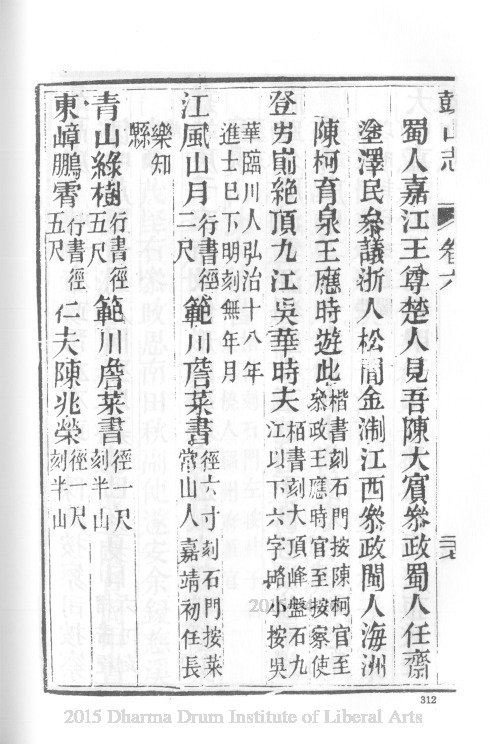 鼓山志 卷六
蜀人嘉江王尊楚人見吾陳大賓叅政蜀人任齋
塗澤民叅議浙人松閒金淛江西叅政閩人海洲
陳柯育泉王應時遊此 楷書刻石門按陳柯官至
叅政王應時官至按察使
登屴崱絶頂九江吳華時夫 栢書刻大頂峰盤石九
江以下六字略小按吳
華臨川人弘治十八年
進士巳下明刻無年月
江風山月 行書徑
二尺 範川詹莱書 徑六寸刻石門按莱
常山人嘉靖初任長
樂知
縣
青山綠樹 行書徑
五尺 範川詹莱書 徑一尺
刻半山
東嶂鵬霄 行書徑
五尺 仁夫陳兆榮 徑一尺
刻半山
312
2015 Dharma Drum Institute of Liberal Arts